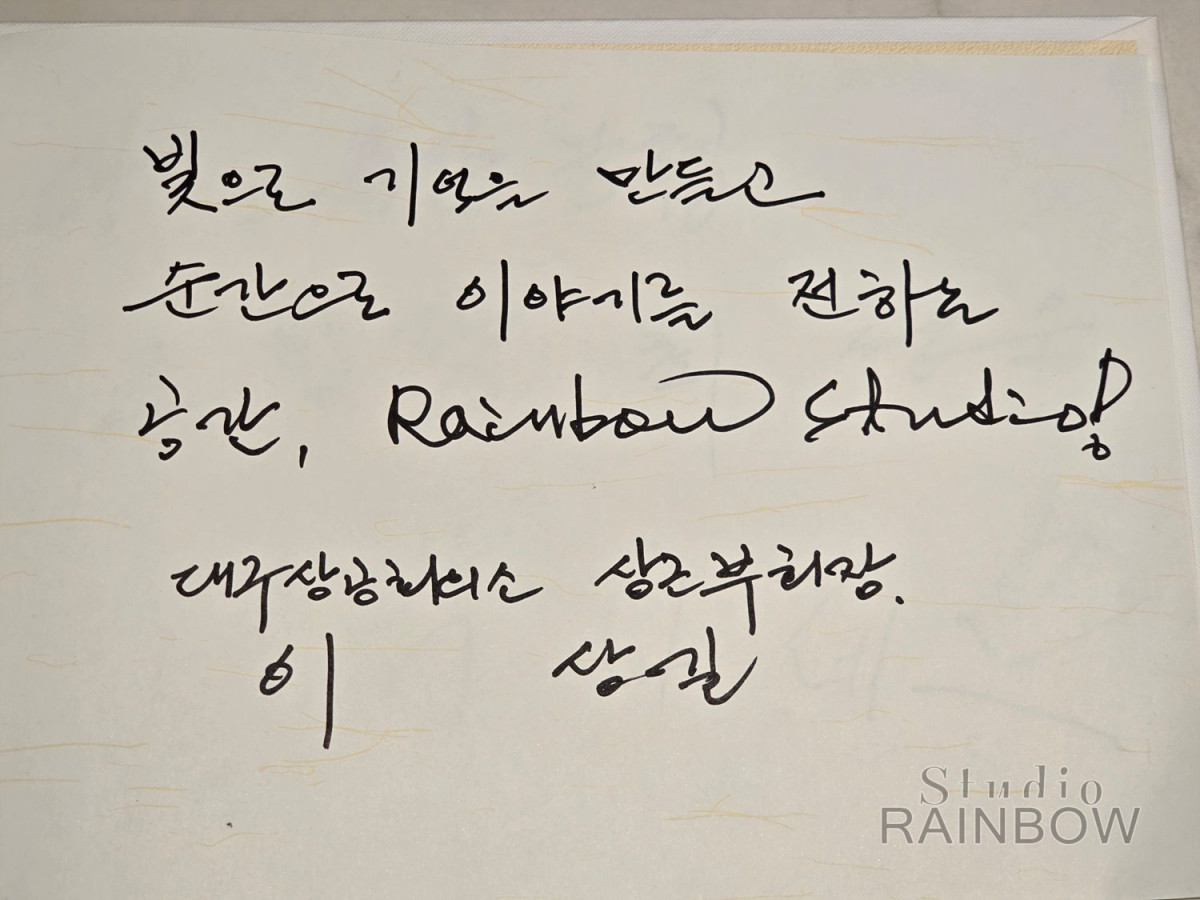 빛으로 기억을 만들고
순간으로 이야기를 전하는
공간, Rainbow Studio!
대구상공회의소 상근부회장.
이 상길
Studio
RAINBOW